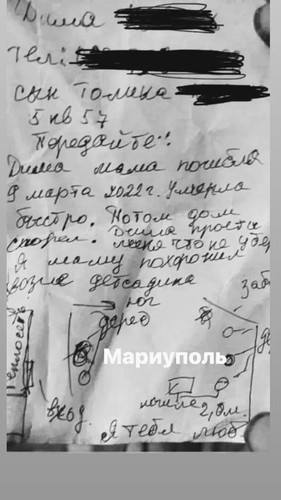 Дима
Тел:
сын Толика
5 кв 57
Передайте!!
Дима мама погибла
9 марта 2022г. Умерла
быстро. Потом дом
сгорел. Дима прости
меня что не убер
Я маму похоронил
возле детсадика
юг
заб
дерев
Теплосеть
Мариуполь
вход.
2,8м.
Я тебя люб